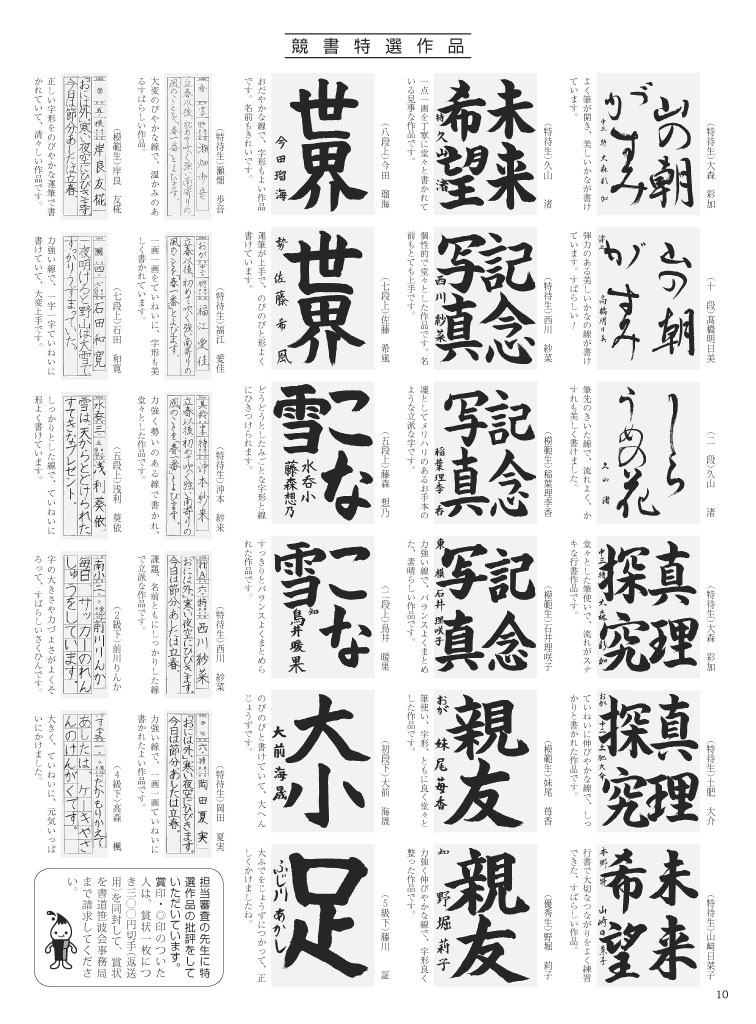 競書特選作品
(特待生)大森 彩加
山の朝
がすみ
大森彩加
よく筆が開き、美しいかなが書け
ています。
(十 段)髙橋明日美
山の朝
がすみ
高橋明日美
弾力のある美しいかなの線が書け
ています。すばらしい!
(二 段)久山 渚
しら
うめの花
久山 渚
筆先のきいた線で、流れよく、か
すれも美しく書けました。
(特待生)大森 彩加
真理
探究
大森彩加
堂々とした筆使いで、流れがステ
キな行書作品です。
(特待生)土肥 大介
真理
探究
土肥大介
ていねいに伸びやかな線で、しっ
かりと書かれた作品です。
(特待生)山﨑日菜子
未来
希望
行書で大切なつながりをよく練習
できた、すばらしい作品。
(特待生)久山 渚
未来
希望
特 久山 渚
一点一画を丁寧に堂々と書かれて
いる見事な作品です。
(特待生)西川 紗菜
記念
写真
西川紗菜
個性的で堂々とした作品です。名
前もとても上手です。
(模範生)稲葉理季香
記念
写真
稲葉理季香
凜としてメリハリのあるお手本の
ような立派な字です。
(模範生)石井理咲子
記念
写真
東 模 石井理咲子
力強い線で、バランスよくまとめ
た、素晴らしい作品です。
(模範生)妹尾 苺香
親友
おが 妹尾苺香
筆使い、字形、ともに良く堂々と
した作品です。
(優秀生)野堀 莉子
親友
知 野堀莉子
力強く伸びやかな線で、字形良く
整った作品です。
(八段上)今田 瑠海
世界
今田瑠海
おだやかな線で、字形もよい作品
です。名前もきれいです。
(七段上)佐藤 希風
世界
勢 佐藤希風
運筆が上手で、のびのびと形よく
書けています。
(五段上)藤森 想乃
こな
雪
水呑小
藤森想乃
どうどうとしたみごとな字形と線
にひきつけられます。
(二段上)鳥井 暖果
こな
雪
知
鳥井暖果
すっきりとバランスよくまとめら
れた作品です。
(初段下)大前 海晟
大小
大前海晟
のびのびと書けていて、大へん
じょうずです。
(5級下)藤川 証
足
ふじ川あかし
大ふでをじょうずにつかって、正
しくかけましたね。
(特待生)瀬畑 歩音
立春以後、初めて吹く強い南寄りの
風のことを「春一番」とよびます。
大変のびやかな線で、温かみのあ
るすばらしい作品。
(特待生)福江 愛佳
福江愛佳
立春以後、初めて吹く強い南寄りの
風のことを「春一番」とよびます。
一画一画をていねいに、字形も美
しく書かれています。
(特待生)沖本 紗来
沖本紗来
立春以後、初めて吹く強い南寄りの
風のことを「春一番」とよびます。
力強く勢いのある線で書かれ、
堂々とした作品です。
(特待生)西川 紗菜
西川紗菜
「おには外」寒い夜空にひびきます。
今日は節分あしたは立春。
課題、名前ともにしっかりした線
で立派な作品です。
(特待生)岡田 夏実
岡田夏実
「おには外」寒い夜空にひびきます。
今日は節分あしたは立春。
力強い線で、一画一画ていねいに
書かれたよい作品です。
(模範生)岸良 友椛
岸良友椛
「おには外」寒い夜空にひびきます。
今日は節分あしたは立春。
正しい字形をのびやかな運筆で書
かれていて、清々しい作品です。
(七段上)石田 和寛
石田和寛
夜明けごろ、野山は大雪で
すっかりうずまっていた。
力強い線で、一字一字ていねいに
書けていて、大変上手です。
(五段上)浅利 葵依
水呑三
浅利葵依
雪は天からとどけられた
すてきなプレゼント。
しっかりとした線で、ていねいに
形よく書けています。
(2級下)前川りんか
南小二
前川りんか
毎日、サッカーのれん
しゅうをしています。
字の大きさや力づよさがよくそ
ろって、すばらしいさくひんです。
(4級下)髙森 楓
たかもりかえで
あしたは、ケーキやさ
んのけんがくです。
大きく、ていねいに、元気いっぱ
いにかけました。
担当審査の先生に特
選作品の批評をして
いただいています。
賞印・◎印のついた
人は、賞状一枚につ
き三〇〇円切手(返送
用)を同封して、賞状
を書道笹波会事務局
まで請求してくださ
い。
10